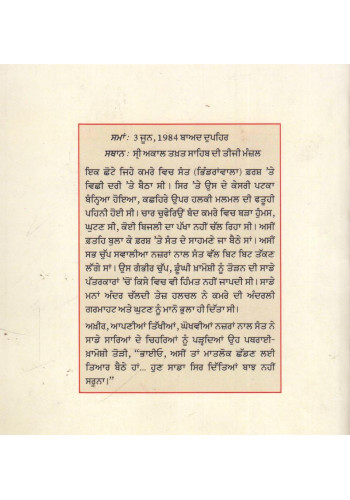 ਸਮਾਂ: 3 ਜੂਨ, 1984 ਬਾਅਦ ਦੁਪਹਿਰ
ਸਥਾਨ: ਸ੍ਰੀ ਅਕਾਲ ਤਖ਼ਤ ਸਾਹਿਬ ਦੀ ਤੀਜੀ ਮੰਜ਼ਲ
ਇਕ ਛੋਟੇ ਜਿਹੇ ਕਮਰੇ ਵਿਚ ਸੰਤ (ਭਿੰਡਰਾਂਵਾਲਾ) ਫ਼ਰਸ਼ 'ਤੇ
ਵਿਛੀ ਦਰੀ 'ਤੇ ਬੈਠਾ ਸੀ। ਸਿਰ 'ਤੇ ਉਸ ਦੇ ਕੇਸਰੀ ਪਟਕਾ
ਬੰਨ੍ਹਿਆ ਹੋਇਆ, ਕਛਹਿਰੇ ਉਪਰ ਹਲਕੀ ਮਲਮਲ ਦੀ ਫਤੂਹੀ
ਪਹਿਨੀ ਹੋਈ ਸੀ। ਚਾਰ ਚੁਫੇਰਿਉਂ ਬੰਦ ਕਮਰੇ ਵਿਚ ਬੜਾ ਹੁੰਮਸ,
ਘੁਟਣ ਸੀ, ਕੋਈ ਬਿਜਲੀ ਦਾ ਪੱਖਾ ਨਹੀਂ ਚੱਲ ਰਿਹਾ ਸੀ। ਅਸੀਂ
ਫ਼ਤਹਿ ਬੁਲਾ ਕੇ ਫ਼ਰਸ਼ 'ਤੇ ਸੰਤ ਦੇ ਸਾਹਮਣੇ ਜਾ ਬੈਠੇ ਸਾਂ। ਅਸੀਂ
ਸਭ ਚੁੱਪ ਸਵਾਲੀਆ ਨਜ਼ਰਾਂ ਨਾਲ ਸੰਤ ਵੱਲ ਬਿਟ ਬਿਟ ਤੱਕਣ
ਲੱਗੇ ਸਾਂ। ਉਸ ਗੰਭੀਰ ਚੁੱਪ, ਡੂੰਘੀ ਖ਼ਾਮੋਸ਼ੀ ਨੂੰ ਤੋੜਨ ਦੀ ਸਾਡੇ
ਪੱਤਰਕਾਰਾਂ 'ਚੋਂ ਕਿਸੇ ਵਿਚ ਵੀ ਹਿੰਮਤ ਨਹੀਂ ਜਾਪਦੀ ਸੀ। ਸਾਡੇ
ਮਨਾਂ ਅੰਦਰ ਚੱਲਦੀ ਤੇਜ਼ ਹਲਚਲ ਨੇ ਕਮਰੇ ਦੀ ਅੰਦਰਲੀ
ਗਰਮਾਹਟ ਅਤੇ ਘੁਟਣ ਨੂੰ ਮਾਨੋ ਭੁਲਾ ਹੀ ਦਿੱਤਾ ਸੀ।
ਅਖ਼ੀਰ, ਆਪਣੀਆਂ ਤਿੱਖੀਆਂ, ਘੋਖਵੀਆਂ ਨਜ਼ਰਾਂ ਨਾਲ ਸੰਤ ਨੇ
ਸਾਡੇ ਸਾਰਿਆਂ ਦੇ ਚਿਹਰਿਆਂ ਨੂੰ ਪੜ੍ਹਦਿਆਂ ਉਹ ਪਥਰਾਈ-
ਖ਼ਾਮੋਸ਼ੀ ਤੋੜੀ, "ਭਾਈਓ, ਅਸੀਂ ਤਾਂ ਮਾਤਲੋਕ ਛੱਡਣ ਲਈ
ਤਿਆਰ ਬੈਠੇ ਹਾਂ... ਹੁਣ ਸਾਡਾ ਸਿਰ ਦਿੱਤਿਆਂ ਬਾਝ ਨਹੀਂ
ਸਰੂਨਾ।"